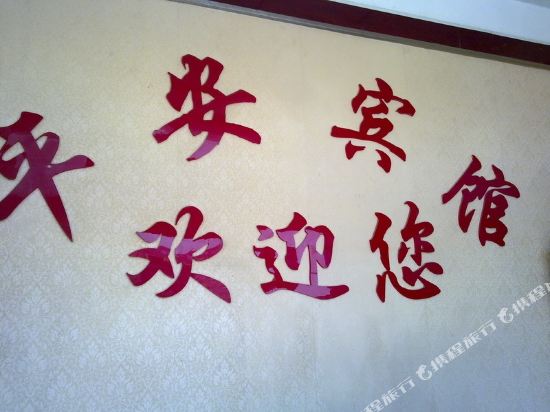 平安宾馆
欢迎您
携程旅行
携程旅行